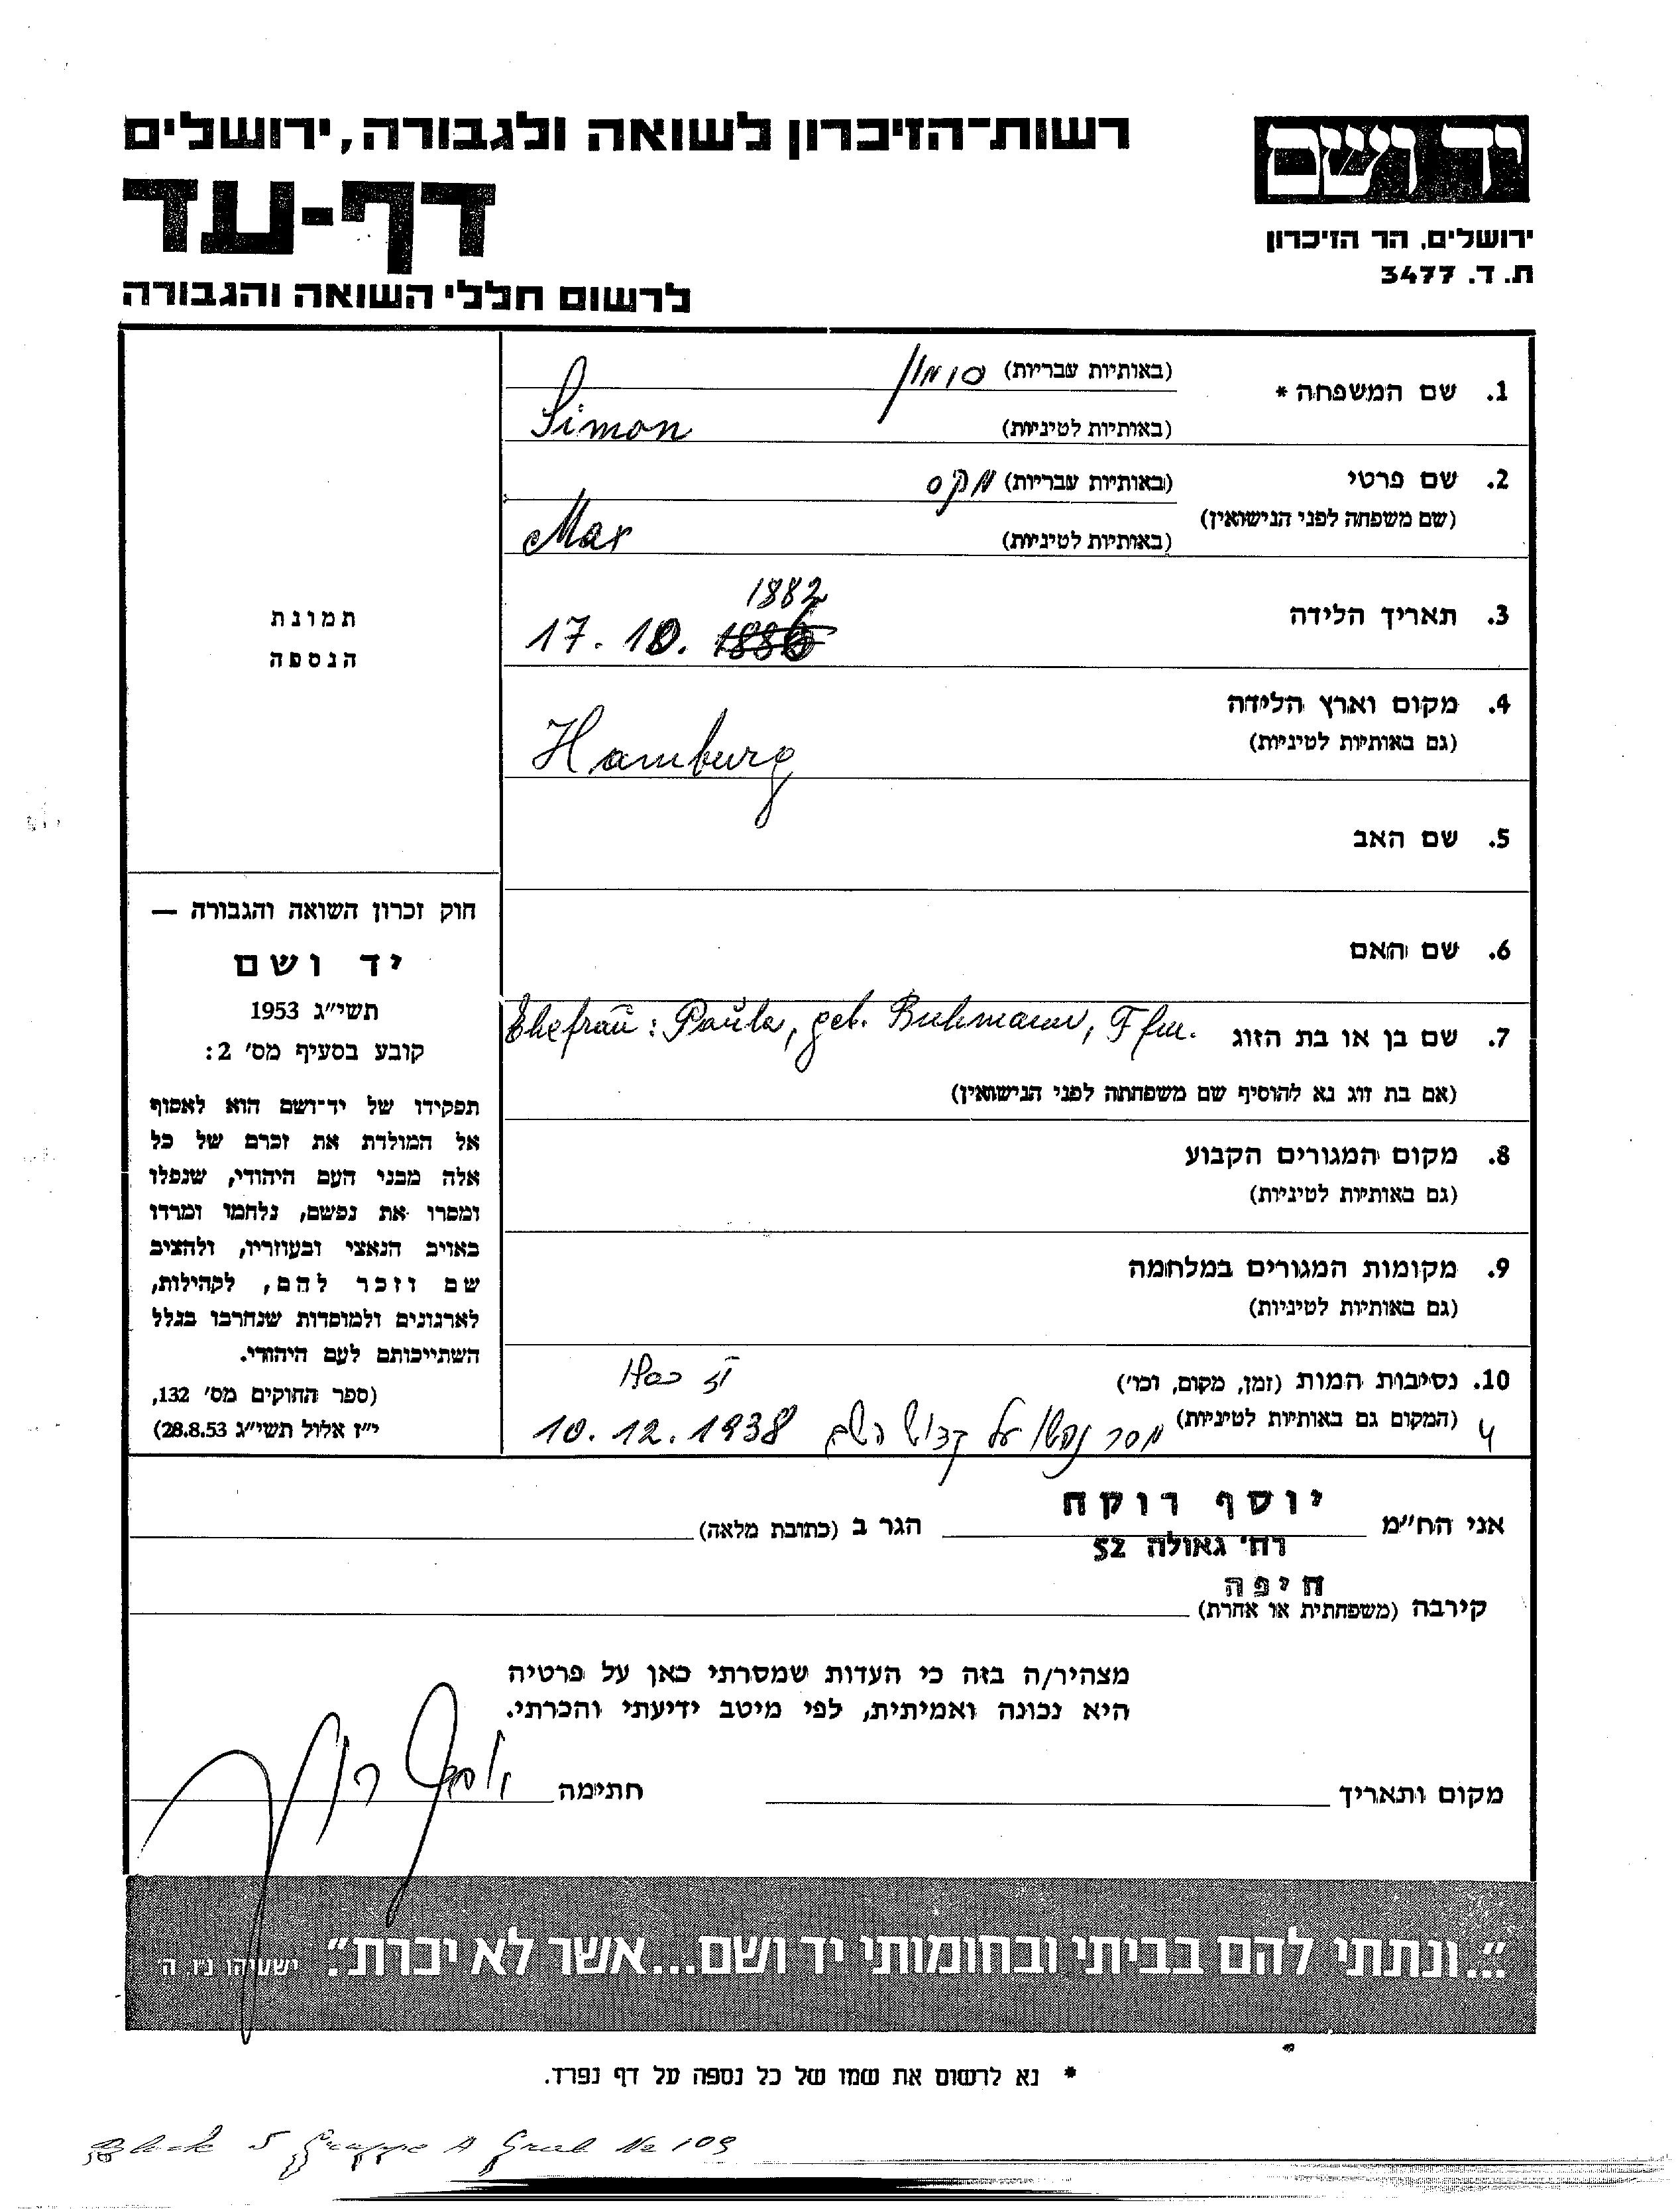 רשות־הזיכרון לשואה ולגבורה, ירושלים
יד ושם
דף-עד
ירושלים, הר הזיכרון
ת. ד. 3477
לרשום חללי השואה והגבורה
1. שם המשפחה * (באותיות עבריות) סימון
(באותיות לטיניות) Simon
2. שם פרטי (באותיות עבריות) מקס
(שם משפחה לפני הנישואין)
(באותיות לטיניות) Max
1882
3. תאריך הלידה 17. 10. 1886
4. מקום וארץ הלידה
(גם באותיות לטיניות) Hamburg
5. שם האב
6. שם האם
7. שם בן או בת הזוג Ehefrau: Paula, geb. Buhmann, Ffm.
(אם בת זוג נא להוסיף שם משפחתה לפני הנישואין)
8. מקום המגורים הקבוע
(גם באותיות לטיניות)
9. מקומות המגורים במלחמה
(גם באותיות לטיניות)
10. נסיבות המות (זמן, מקום, וכו')
(המקום גם באותיות לטיניות) מסר נפשו על קדוש השם 10. 12. 1938
תמונת
הנספה
חוק זכרון השואה והגבורה —
יד ושם
תשי״ג 1953
קובע בסעיף מס' 2:
תפקידו של יד־ושם הוא לאסוף
אל המולדת את זכרם של כל
אלה מבני העם היהודי, שנפלו
ומסרו את נפשם, נלחמו ומרדו
באויב הנאצי ובעוזריו, ולהציב
שם וזכר להם, לקהילות,
לארגונים ולמוסדות שנחרבו בגלל
השתייכותם לעם היהודי.
(ספר החוקים מס' 132,
י״ז אלול תשי״ג 28.8.53)
אני הח״מ יוסף רוקח הגר ב (כתובת מלאה)
רח' גאולה 52
חיפה
קירבה (משפחתית או אחרת)
מצהיר/ה בזה כי העדות שמסרתי כאן על פרטיה
היא נכונה ואמיתית, לפי מיטב ידיעתי והכרתי.
מקום ותאריך חתימה יוסף רוקח
״...ונתתי להם בביתי ובחומותי יד ושם...אשר לא יכרת״. ישעיהו נ״ו, ה'
* נא לרשום את שמו של כל נספה על דף נפרד.
Block 5 Gruppe A Grab No 109